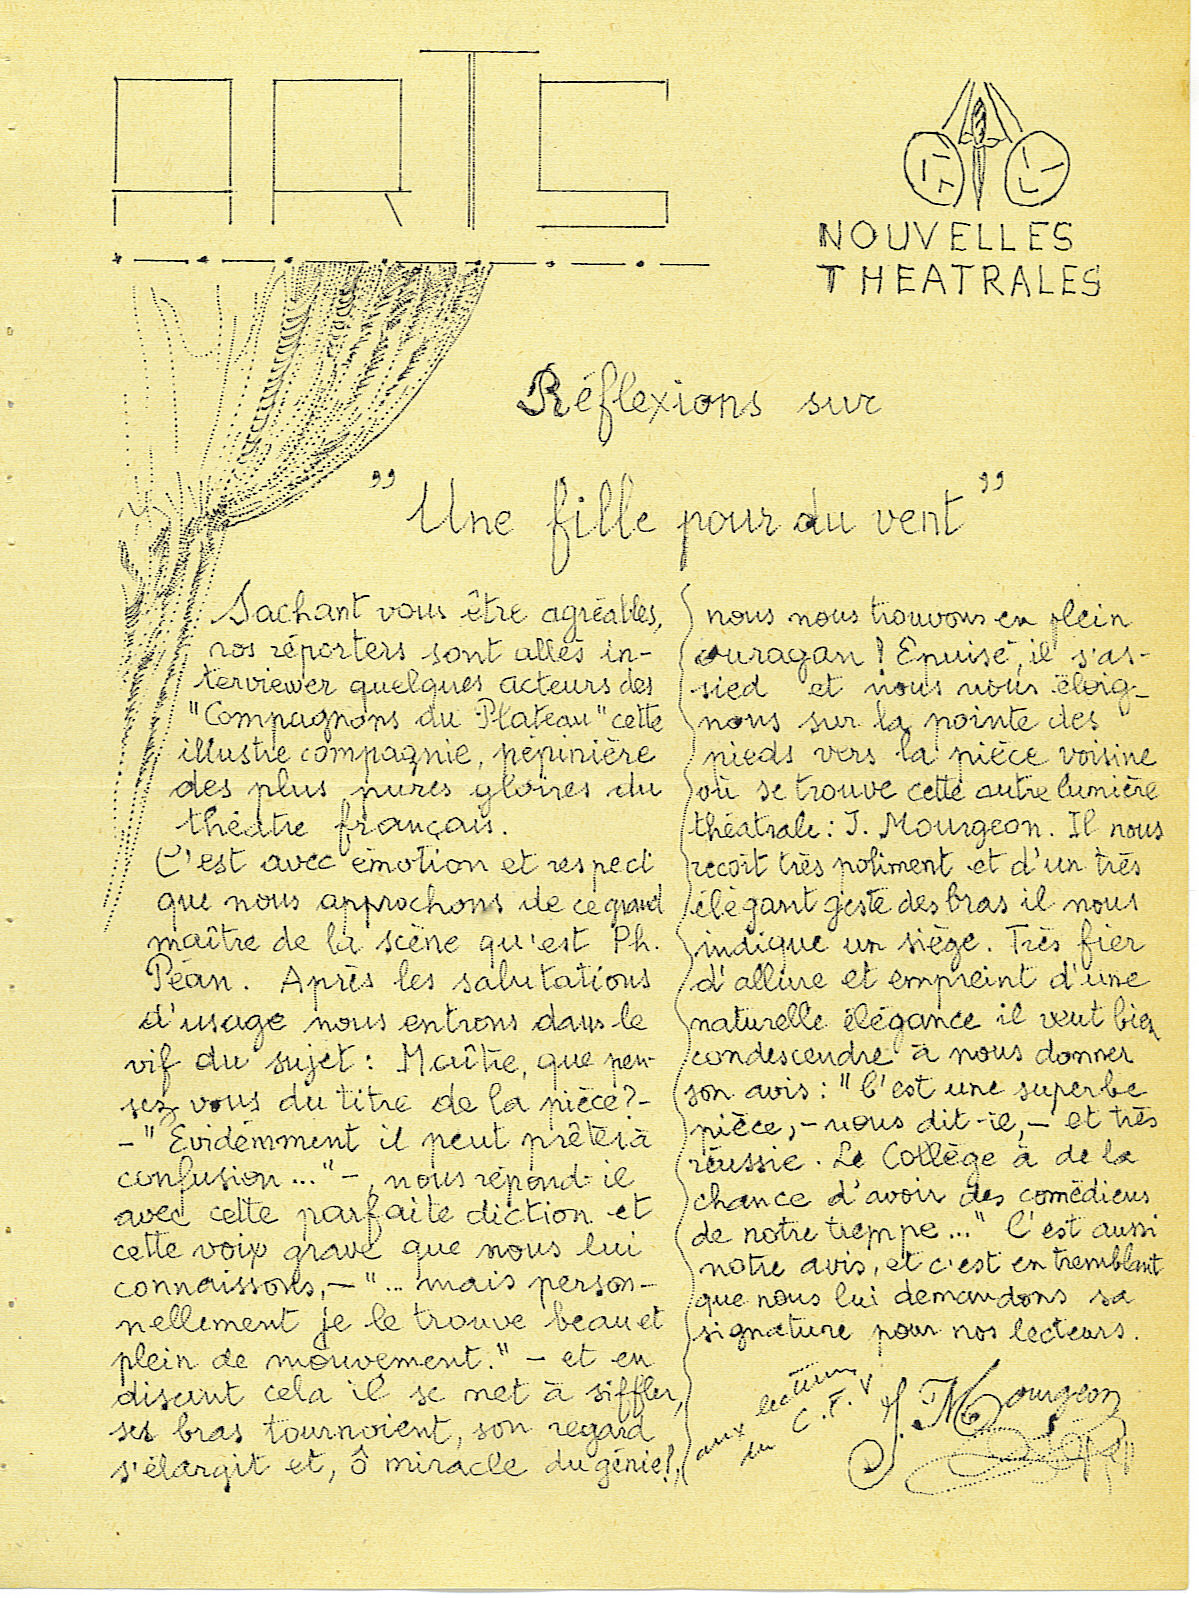 ARTS
NOUVELLES
THEATRALES
Réflexions sur
" Une fille pour du vent "
Sachant vous être agréables,
nos réporters sont allés in-
terviewer quelques acteurs des
"Compagnons du Plateau" cette
illustre compagnie, pépinière
des plus pures gloires du
théâtre français.
C'est avec émotion et respect
que nous approchons de ce grand
maître de la scène qu'est Ph.
Péan. Après les salutations
d'usage nous entrons dans le
vif du sujet : Maître, que pen-
sez vous du titre de la pièce? -
- "Evidemment il peut prêter à
confusion..." - nous répond-il
avec cette parfaite diction et
cette voix grave que nous lui
connaissons, - "... mais person-
nellement je le trouve beau et
plein de mouvement." - et en
disant cela il se met à siffler,
ses bras tournoient, son regard
s'élargit et, ô miracle du génie!,
nous nous trouvons en plein
ouragan ! Epuisé, il s'as-
sied et nous nous éloig-
nous sur la pointe des
pieds vers la pièce voisine
où se trouve cette autre lumière
théatrale : J. Mourgeon. Il nous
reçoit très poliment et d'un très
élégant geste des bras il nous
indique un siège. Très fier
d'allure et empreint d'une
naturelle élégance il veut bien
condescendre à nous donner
son avis : "C'est une superbe
pièce, - nous dit-il, - et très
réussie. Le Collège à de la
chance d'avoir des comédiens
de notre trempe..." C'est aussi
notre avis, et c'est en tremblant
que nous lui demandons sa
signature pour nos lecteurs.
aux lecteurs
du C.F.V
J. Mourgeon